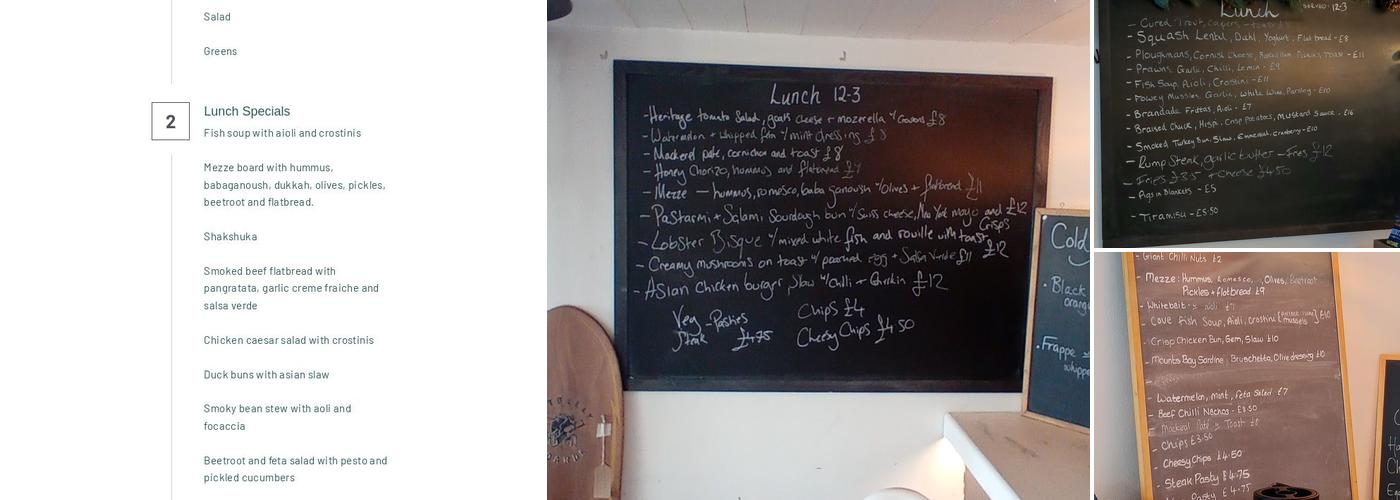 Salad
Greens
2
Lunch Specials
Fish soup with aioli and crostinis
Mezze board with hummus,
babaganoush, dukkah, olives, pickles,
beetroot and flatbread.
Shakshuka
Smoked beef flatbread with
pangratata, garlic creme fraiche and
salsa verde
Chicken caesar salad with crostinis
Duck buns with asian slaw
Smoky bean stew with aoli and
focaccia
Beetroot and feta salad with pesto and
pickled cucumbers
Lunch 12-3
- Heritage tomato Salad, goats cheese + mozerella w/ £8
- Watermelon + whipped feta w/ mint dressing £8
- Mackerel pate, cornichon and toast £8
- Honey Chorizo, hummus and flatbread £7
- Mezze - hummus, romesco, baba ganoush w/ olives + flatbread £11
- Pastarmi + Salami Sourdough bun w/ Swiss cheese, New York mayo and £12
Crisps
- Lobster Bisque w/ mixed white fish and rouille with toast £12
- Creamy mushrooms on toast w/ poached egg + Salsa Verde £11
- Asian Chicken burger, Slaw w/ Chilli + Gherkin £12
Veg - Pasties
Steak £4.75
Chips £4
Cheesy Chips £4.50
Cold
Black
orange
Frappe
whipped
Lunch SERVED 12-3
- Cured Trout, Capers - toast
- Squash Lentil, Dahl, Yoghurt, Flat bread - £8
- Ploughmans, Cornish Cheese, Pickles, Toast - £11
- Prawns, Garlic, Chilli, Lemon - £9
- Fish Soup, Aioli, Crostini - £11
- Fowey Mussels, Garlic, White Wine, Parsley - £10
- Brandade Frittas, Aioli - £7
- Braised Chuck, Hispi, Crisp potatoes, Mustard Sauce - £16
- Smoked Turkey Bun, Slaw, Emmental, Cranberry - £10
- Rump Steak, garlic butter - Fries £12
- Fries £3.5 + Cheese £4.50
- Pigs in Blankets - £5
- Tiramisu - £5.50
- Giant Chilli Nuts £2
- Mezze: Hummus, Romesco, Olives, Beetroot
Pickles + flatbread £9
- Whitebait aioli £7
- Cove Fish Soup, Aioli, Crostini mussels £10
- Crisp Chicken Bun, Gem, Slaw £10
- Mounts Bay Sardine, Bruschetta, Olive dressing £10
- Watermelon, mint, Feta Salad £7
- Beef Chilli Nachos - £8.50
- Mackerel Pate + Toast £8
- Chips £3.50
- Cheesy Chips £4.50
- Steak Pasty £4.75
Pasty £4.75